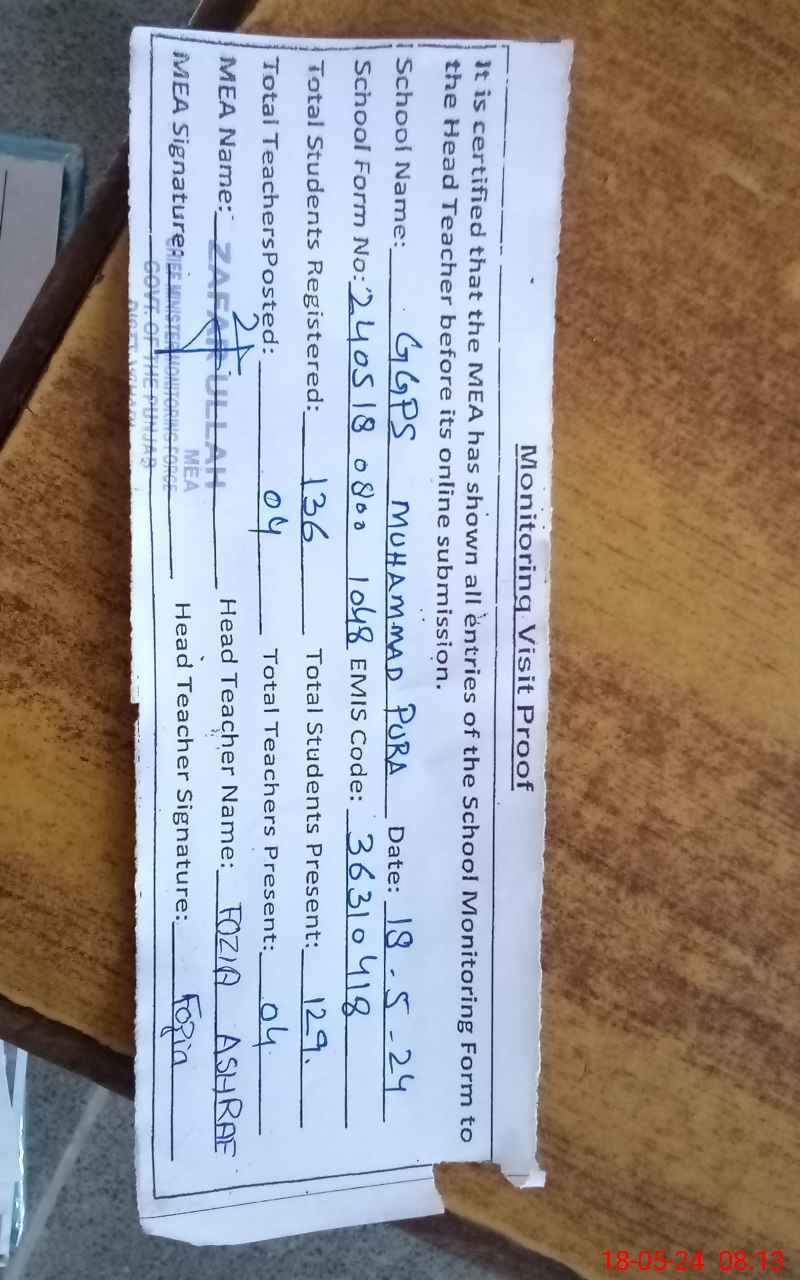 Monitoring Visit Proof
It is certified that the MEA has shown all entries of the School Monitoring Form to
the Head Teacher before its online submission.
School Name: GGPS MUHAMMAD PURA Date: 18-5-24
School Form No: 240518 0800 1048 EMIS Code: 36310418
Total Students Registered: 136 Total Students Present: 129.
Total TeachersPosted: 04 Total Teachers Present: 04
MEA Name: ZAFAR ULLAH Head Teacher Name: FOZIA ASHRAF
MEA Signature: Head Teacher Signature: Fozia
MEA
CHIEF MINISTER MONITORING FORCE
GOVT. OF THE PUNJAB
18-05-24 08:13